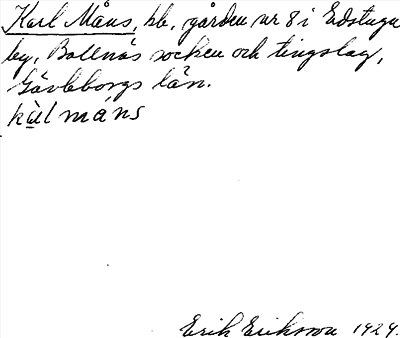 Karl Måns, hb, gården nr 8 i Edstuga
by, Bollnäs socken och tingslag,
Gävleborgs län.
kàl máns
Erik Eriksson 1929.